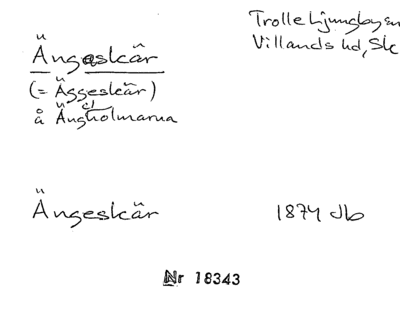 Trolle Ljungby sn
Villands hd, Sk
Ängeskär
(= Äggeskär)
å Ängholmarna
Ängeskär 1874 Jb
Nr 18343